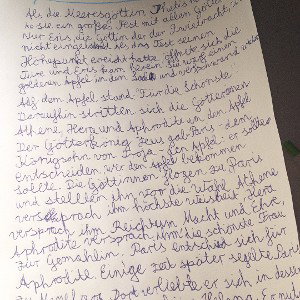 Als die Meeresgöttin Thetis
sie ein großes Fest mit allen Götter
Nur Eris die Göttin der der Zwietracht
nicht eingeladen Als das Fest seinen
Höhepunkt erreicht hatte öffnete sich die
Türe und Eris kam herein Sie warf einen
goldenen Apfel in den Saal und verschwand wieder
Auf dem Apfel stand Für die Schönste
Daraufhin stritten sich die Göttinnen
Athene Hera und Aphrodite um den Apfel
Der Götterkönig Zeus gab Paris - dem
Königssohn von Troja - den Apfel - er sollte
entscheiden wer den Apfel bekommen
sollte Die Göttinnen flogen zu Paris
und stellten ihn vor die Wahl Athene
versprach ihm höchste Weisheit Hera
versprach ihm Reichtum Macht und Ehre
Aphrodite versprach ihm die schönste Frau
zur Gemahlin: Paris entschied sich für
Aphrodite Einige Zeit später segelte Paris
Dort verliebte er sich in dessen
Helena